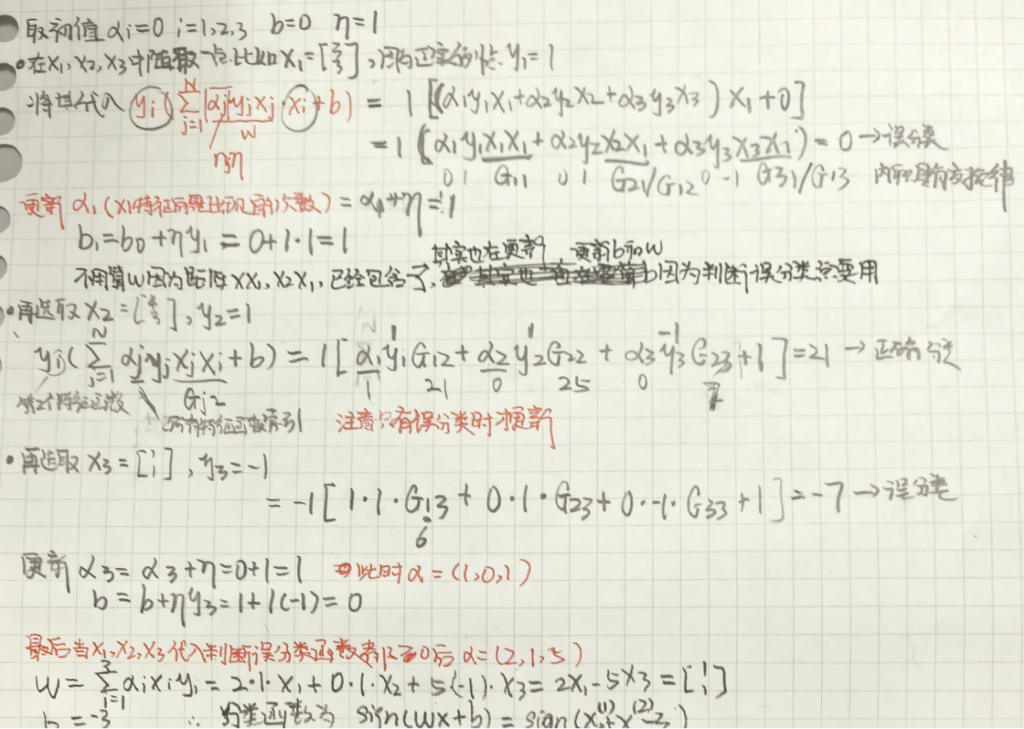 取初值 αi=0 i=1,2,3 b=0 η=1
在x1,x2,x3中随取一点.比如x1=[3 3], y1=1
将其代入 yi(∑_{j=1}^{N} αjyjxj·xi+b) = 1[(α1y1x1+α2y2x2+α3y3x3)x1+0]
w
niη
=1(α1y1x1x1+α2y2x2x1+α3y3x3x1)=0→误分类
0 1 G11 0 1 G21/G12 0 -1 G31/G13 内积具有交换律
更新α1(x1特征向量出现更新次数)=α1+η=1
b1=b0+ηy1=0+1·1=1
其实也在更新 更新b和w
不用算w因为后续xx1,x2x1,已经包含了, b因为判断误分类点要用
再选取x2=[4 3], y2=1
yi(∑_{j=1}^{N} αjyjxjxi+b)=1[α1y1G12+α2y2G22+α3y3G23+1]=21→正确分类
1 1 -1
Gj2 1 21 0 25 0 7
第2个特征函数
所有特征函数索引 注意:只有误分类时才更新
再选取x3=[1 1], y3=-1
=-1[1·1·G13+0·1·G23+0·-1·G33+1]=-7→误分类
6
更新α3=α3+η=0+1=1 此时α=(1,0,1)
b=b+ηy3=1+1(-1)=0
最后当x1,x2,x3代入判断误分类函数都≥0后α=(2,1,5)
w=∑_{i=1}^{3} αixiyi=2·1·x1+0·1·x2+5(-1)·x3=2x1-5x3=[1 1]
b=-3 ∴ 分类函数为 sign(wx+b)=sign(x^{(1)}+x^{(2)}-3)